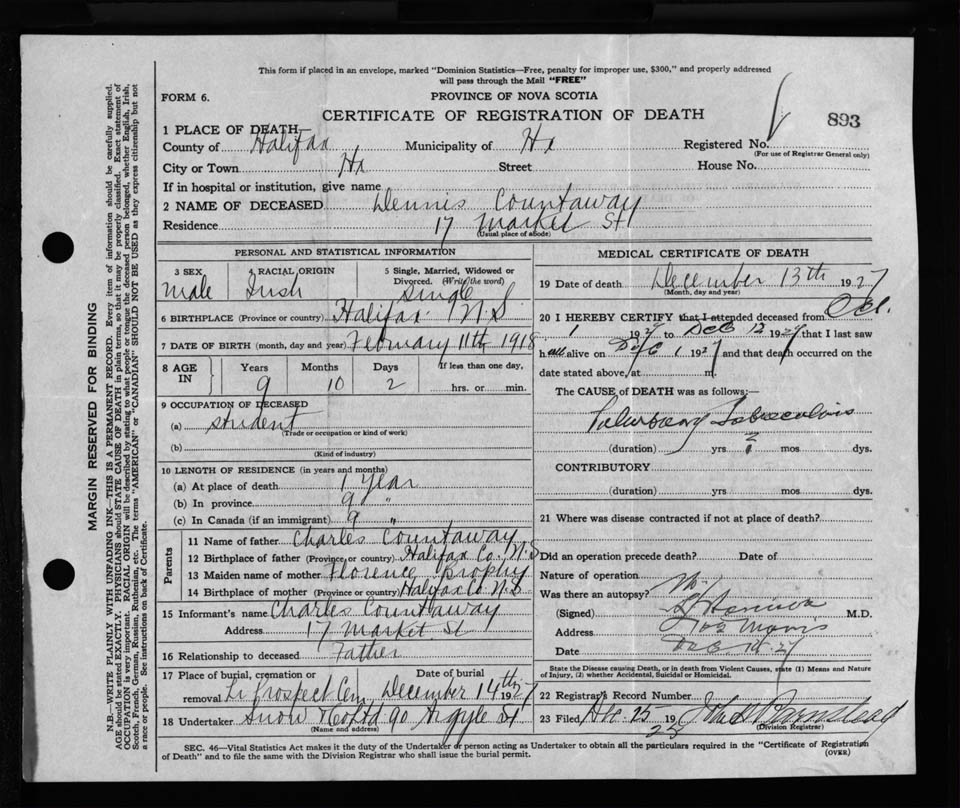 This form if placed in an envelope, marked "Dominion Statistics—Free, penalty for improper use, $300," and properly addressed
will pass through the Mail "FREE"
FORM 6. PROVINCE OF NOVA SCOTIA
CERTIFICATE OF REGISTRATION OF DEATH 893
1 PLACE OF DEATH
County of Halifax Municipality of Hx Registered No.
(For use of Registrar General only)
City or Town Hx Street House No.
If in hospital or institution, give name
2 NAME OF DECEASED Dennis Countaway
Residence 17 Market St
(Usual place of abode)
PERSONAL AND STATISTICAL INFORMATION
3 SEX 4 RACIAL ORIGIN 5 Single, Married, Widowed or Divorced. (Write the word)
Male Irish Single
6 BIRTHPLACE (Province or country) Halifax N.S
7 DATE OF BIRTH (month, day and year) February 11th 1918
8 AGE IN Years Months Days If less than one day,
9 10 2 hrs. or min.
9 OCCUPATION OF DECEASED
(a) student
(Trade or occupation or kind of work)
(b)
(Kind of industry)
10 LENGTH OF RESIDENCE (in years and months)
(a) At place of death 1 year
(b) In province 9 "
(c) In Canada (if an immigrant) 9 "
Parents
11 Name of father Charles Countaway
12 Birthplace of father (Province or country) Halifax Co. N.S
13 Maiden name of mother Florence Brophy
14 Birthplace of mother (Province or country) Halifax Co N.S.
15 Informant's name Charles Countaway
Address 17 Market St
16 Relationship to deceased Father
17 Place of burial, cremation or removal Date of burial
Lr Prospect Cem December 14th 1927
18 Undertaker Snow & Co Ltd 90 Argyle St
(Name and address)
MEDICAL CERTIFICATE OF DEATH
19 Date of death December 13th 1927
(Month, day and year)
20 I HEREBY CERTIFY that I attended deceased from Oct.
1 1927 to Dec 12 1927 that I last saw
h alive on Dec 1 1927 and that death occurred on
date stated above, at m.
The CAUSE of DEATH was as follows:—
Pulmonary Tuberculosis
(duration) yrs mos dys.
CONTRIBUTORY
(duration) yrs mos dys.
21 Where was disease contracted if not at place of death?
Did an operation precede death? Date of
Nature of operation
Was there an autopsy? No
(Signed) M.D.
Address Morris
Date Dec 27
State the Disease causing Death, or in death from Violent Causes, state (1) Means and Nature
of Injury, (2) whether Accidental, Suicidual or Homicidal.
22 Registrar's Record Number
23 Filed, Dec. 19 Barnstead
(Division Registrar)
SEC. 46—Vital Statistics Act makes it the duty of the Undertaker or person acting as Undertaker to obtain all the particulars required in the "Certificate of Registration
of Death" and to file the same with the Division Registrar who shall issue the burial permit. (OVER)
MARGIN RESERVED FOR BINDING
N.B.—WRITE PLAINLY WITH UNFADING INK—THIS IS A PERMANENT RECORD. Every item of information should be carefully supplied.
AGE should be stated EXACTLY. PHYSICIANS should STATE CAUSE OF DEATH in plain terms, so that it may be properly classified. Exact statement of
OCCUPATION is very important. RACIAL ORIGIN will be described by stating to what people or tongue the deceased person belonged, whether English, Irish,
Scotch, French, German, Russian, Ruthenian, etc. The terms "AMERICAN" or "CANADIAN" SHOULD NOT BE USED as they express citizenship but not
a race or people. See instructions on back of Certificate.